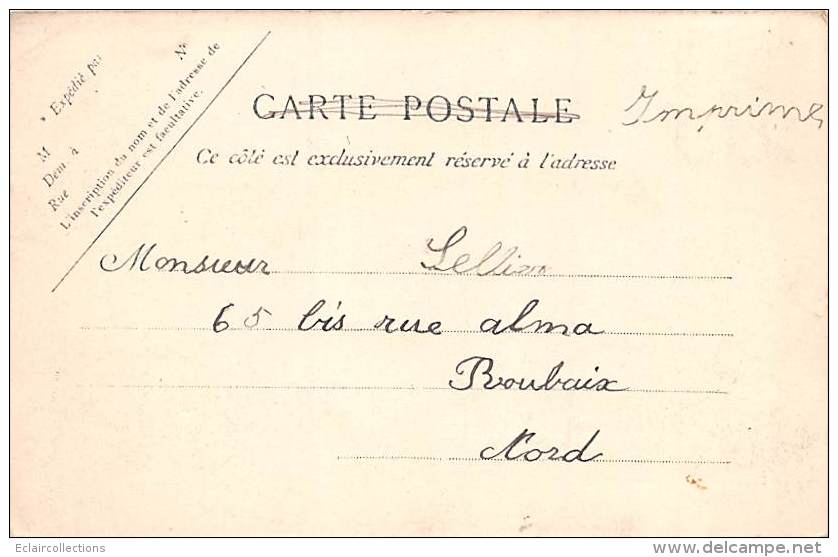 Expédié par
M N°
Dem. à
Rue
L'inscription du nom et de l'adresse de
l'expéditeur est facultative.
CARTE POSTALE
Imprimé
Ce côté est exclusivement réservé à l'adresse
Monsieur
65 bis rue alma
Roubaix
Nord
Eclaircollections
delcampe.net